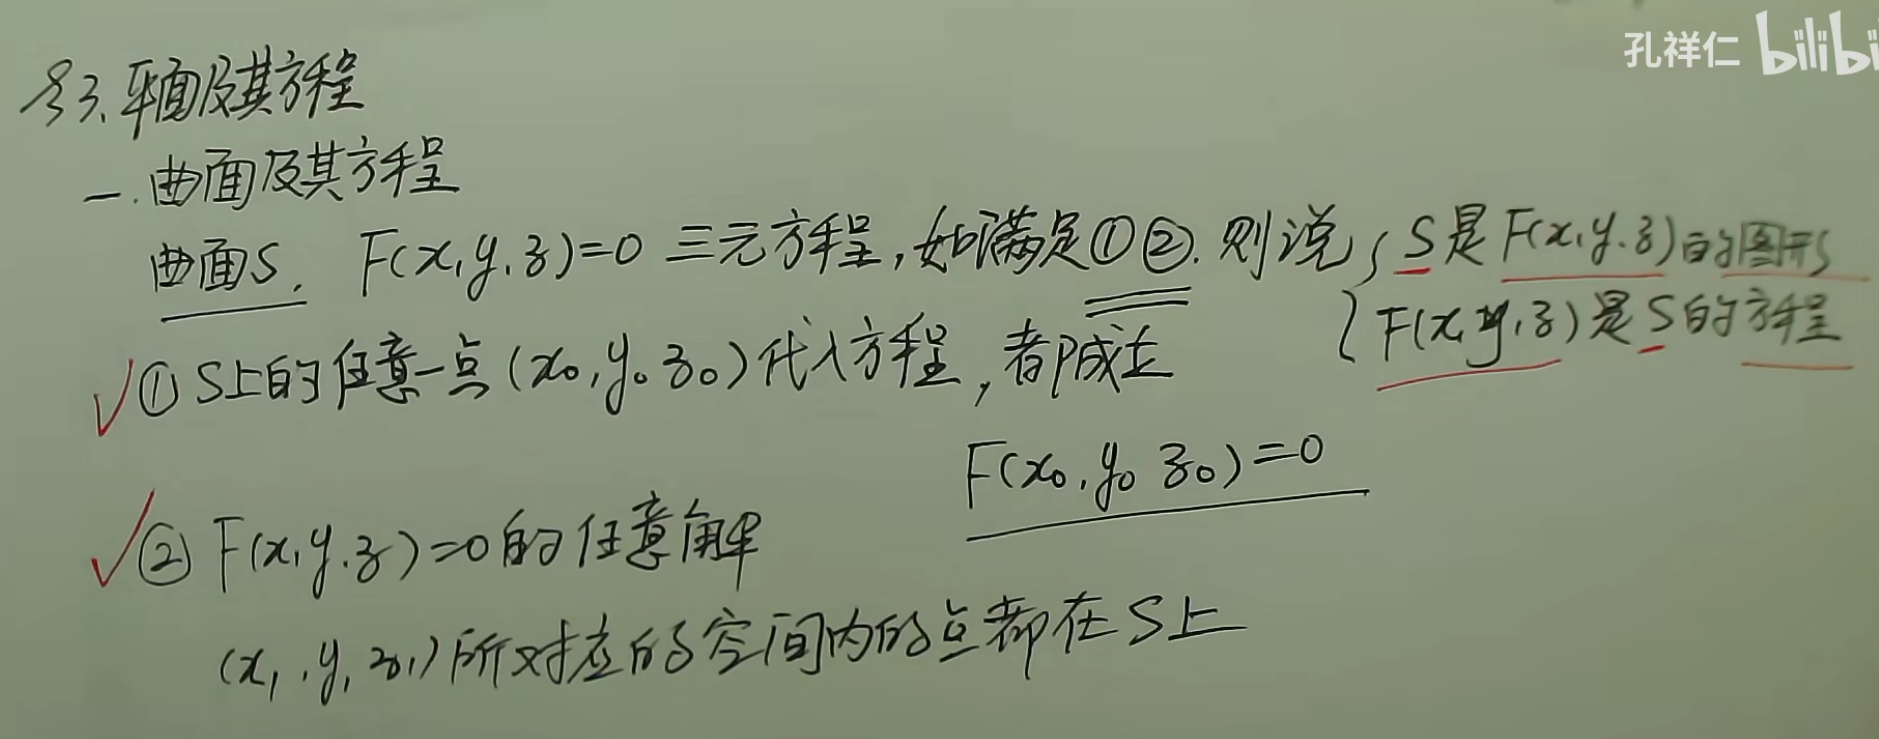 孔祥仁 bilibi
§3.平面及其方程
一.曲面及其方程
曲面S. F(x,y,z)=0 三元方程,如满足①②.则说 { S是F(x,y.z)的图形
F(x,y,z)是S的方程
✓①S上的任意一点(x₀,y₀ z₀)代入方程,都成立
F(x₀,y₀ z₀)=0
✓②F(x,y.z)=0的任意解
(x₁,y₁ z₁)所对应的空间内的点都在S上